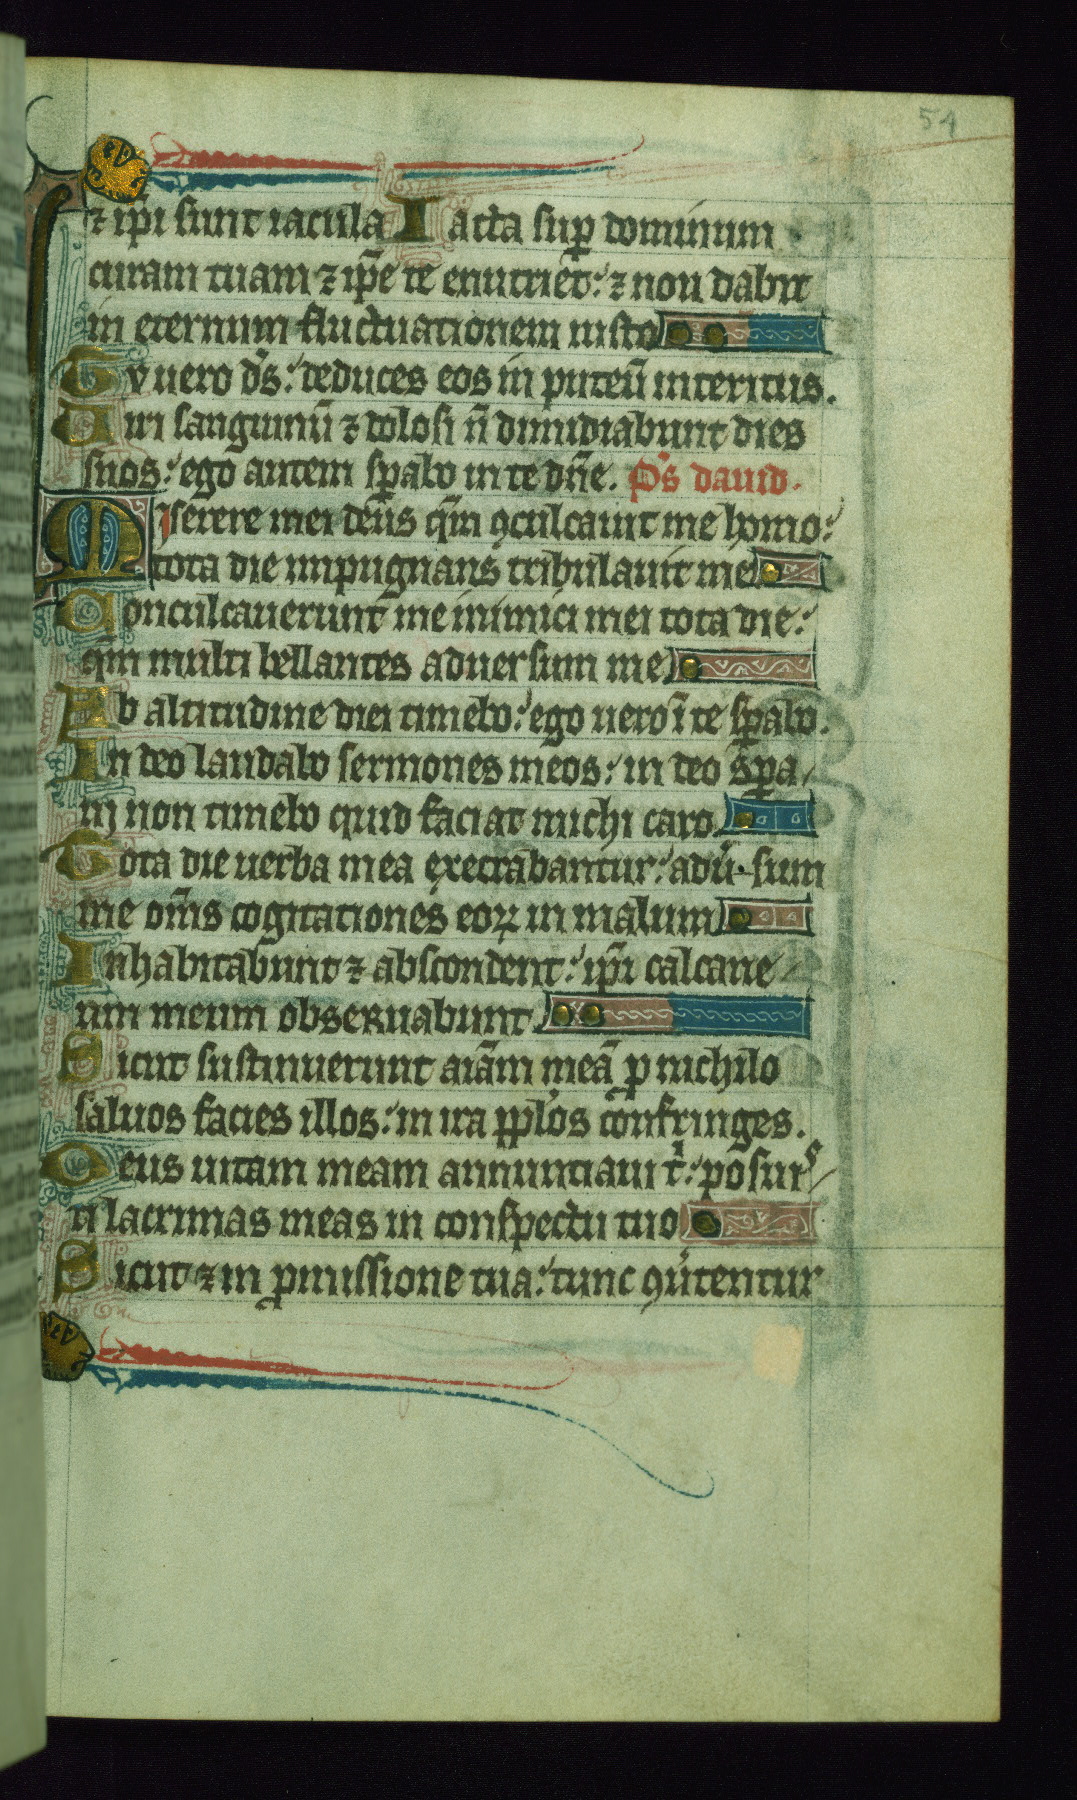 54
⁊ ip̄i sunt iacula Iacta sup̱ dominum
curam tuam ⁊ ip̄e te enutriet: ⁊ non dabit
in eternum fluctuationem iusto
Tv uero d̄s: deduces eos in puteū interitus.
Uiri sanguinū ⁊ dolosi n̄ dimidiabunt dies
suos: ego autem sp̱abo in te dn̄e. P̄s dauid.
Miserere mei deus qm̄ ꝯculcauit me homo:
tota die inpugnans tribulauit me
Conculcauerunt me inimici mei tota die:
qm̄ multi bellantes aduersum me
Ab altitudine diei timebo: ego uero ī te sp̱abo.
In deo laudabo sermones meos: in deo sp̱a/
ui non timebo quid faciat michi caro
Tota die uerba mea execrabantur: adū·sum
me om̄s cogitationes eoꝝ in malum
Inhabitabunt ⁊ abscondent: ip̄i calcane/
um meum obseruabunt
Sicut sustinuerunt aīam meā ꝓ nichilo
saluos facies illos: in ira pp̄los confringes.
Deus uitam meam annuntiaui t̄: posuis/
ti lacrimas meas in conspectu tuo
Sicut ⁊ in ꝓmissione tua: tunc ꝯūtentur